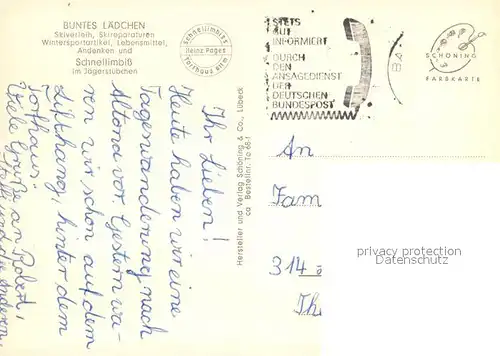 BUNTES LÄDCHEN
Skiverleih, Skireparaturen
Wintersportartikel, Lebensmittel,
Andenken und
Schnellimbiß
im Jägerstübchen
Schnellimbiß
Heinz Pages
Torfhaus
STETS
AUF
INFORMIERT
DURCH
DEN
ANSAGEDIENST
DER
DEUTSCHEN
BUNDESPOST
BA
SCHÖNING
FARBKARTE
Ihr Lieben!
Heute haben wir eine
Tageswanderung nach
Altona vor. Gestern wa-
ren wir schon auf dem
Lifthang, hinter dem
Torfhaus.
Viele Grüße an Robert,
und die anderen
Hersteller und Verlag Schöning & Co., Lübeck
Bestellnr. To 68-1
An
Fam
314
privacy protection
watermark